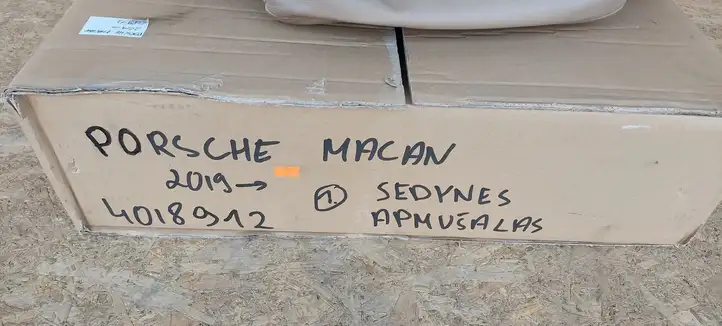 PORSCHE MACAN
2019→
4018912
① SEDYNES
APMUŠALAS